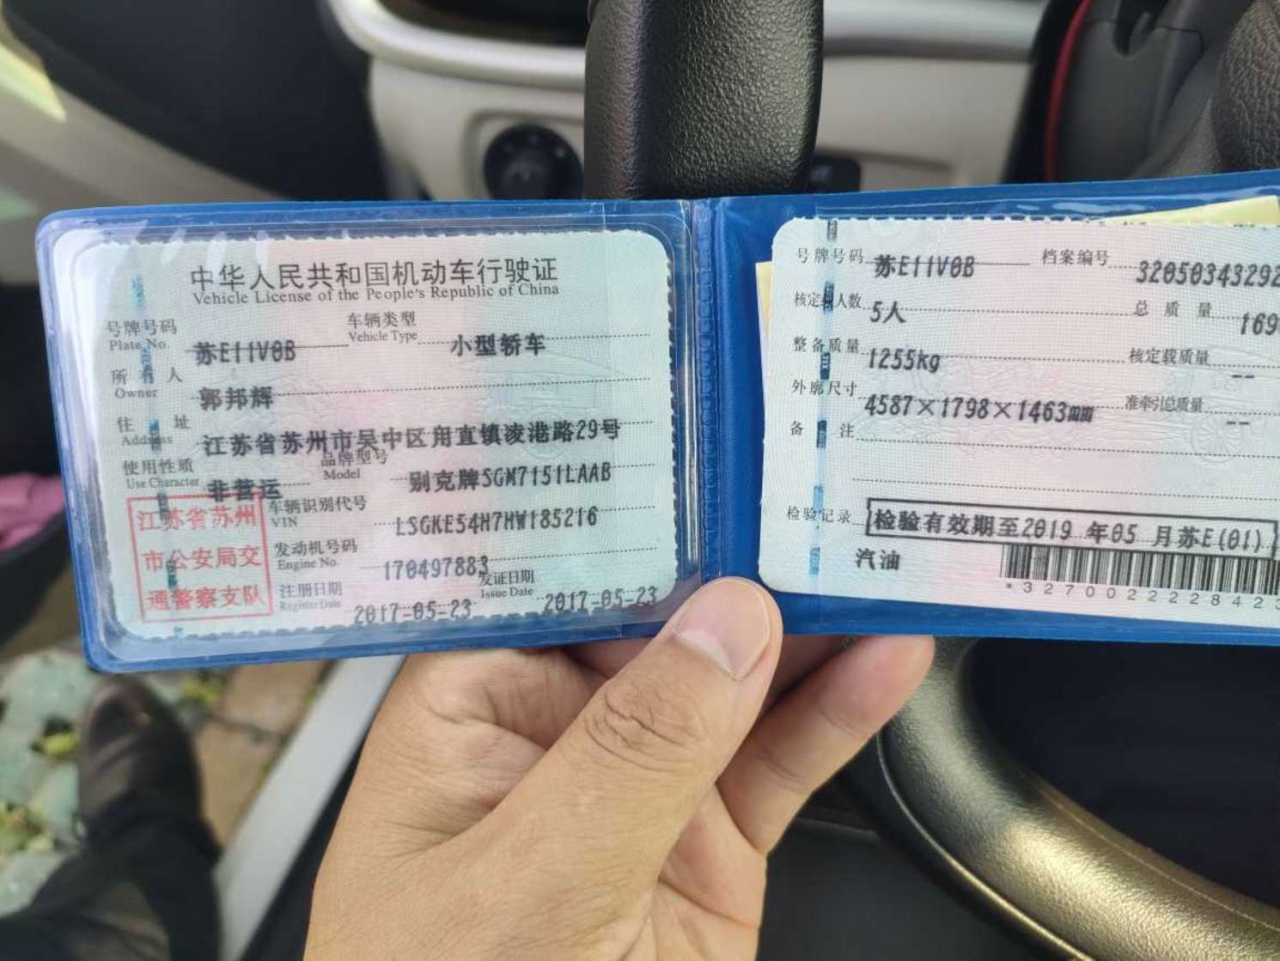 中华人民共和国机动车行驶证
Vehicle License of the People's Republic of China
号牌号码 苏E11V0B 车辆类型 小型轿车
Plate No. Vehicle Type
所有人 郭邦辉
Owner
住址 江苏省苏州市吴中区甪直镇凌港路29号
Address
使用性质 非营运 品牌型号 别克牌SGM7151LAAB
Use Character Model
江苏省苏州
市公安局交
通警察支队
车辆识别代号 LSGKE54H7HW185216
VIN
发动机号码 170497883
Engine No.
注册日期 2017-05-23 发证日期 2017-05-23
Register Date Issue Date
号牌号码 苏E11V0B 档案编号 32050343292
核定人数 5人 总质量 169
整备质量 1255kg 核定载质量 --
外廓尺寸 4587×1798×1463mm 准牵引总质量 --
备注
检验记录 检验有效期至2019年05月苏E(01)
汽油
*327002222842